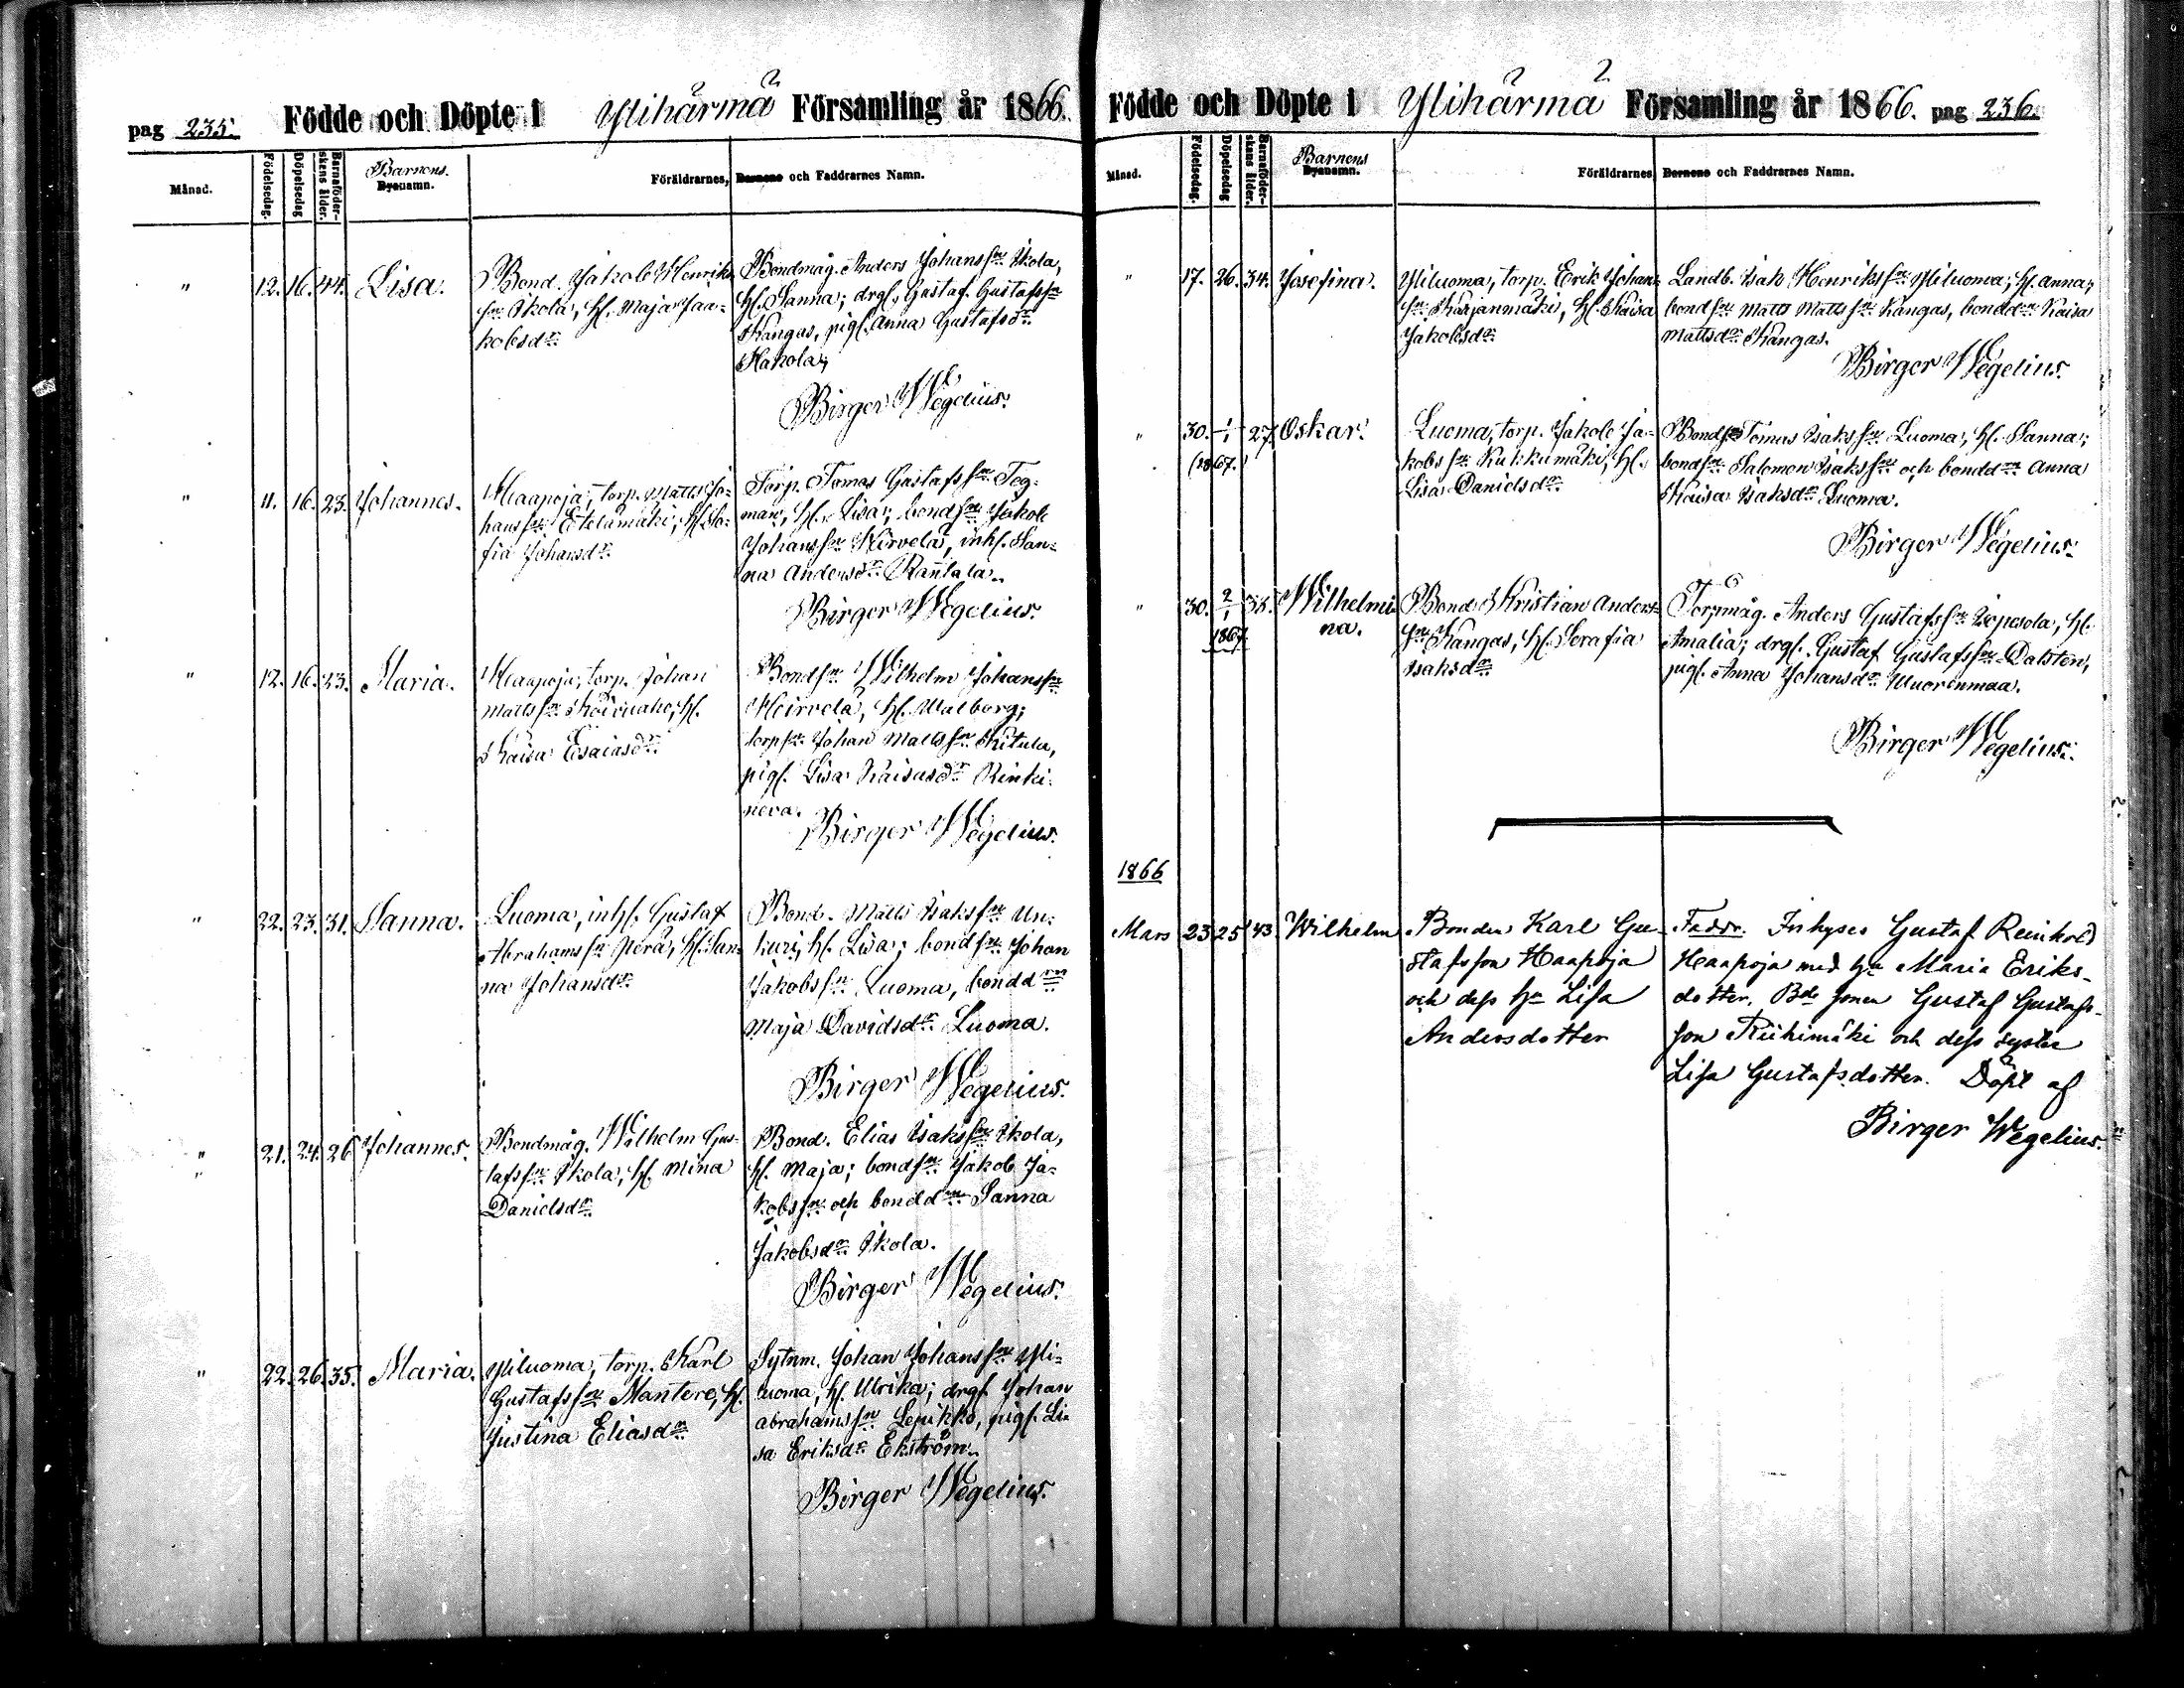 pag 235. Födde och Döpte i Ylihärmä Församling år 1866.
Månad. Födelsedag. Döpelsedag Barnaföderskans ålder. Barnens. Bynamn. Föräldrarnes, Barnens och Faddrarnes Namn.
" 12. 16. 44. Lisa.
Bond. Jakob Henriks
sn Ikola, H. Maja Jaa-
kobsdr
Bondmåg. Anders Johanssn Ikola,
H. Sanna; drgl. Gustaf Gustafssn
Kangas, pigl. Anna Gustafsdr
Hakola;
Birger Wegelius.
" 11. 16. 23. Johannes.
Haapoja, torp. Matts Jo-
hanssn Etelämäki, H. So-
fia Johansdr
Torp. Tomas Gustafssn Teg-
man, H. Lisa; bondsn Jakob
Johanssn Hirvelä, inh. San-
na Andersdr Rantala.
Birger Wegelius.
" 12. 16. 23. Maria.
Haapoja, torp. Johan
Mattssn Koivuaho, H.
Kaisa Esaiasdr
Bondsn Wilhelm Johanssn
Hirvelä, H. Walborg;
torpsn Johan Mattssn Kitula,
pigl. Lisa Kaisasdr Rinki-
neva.
Birger Wegelius.
" 22. 23. 31. Sanna.
Luoma, inh. Gustaf
Abrahamssn Perä, H. San-
na Johansdr
Bond. Matts Isakssn Un-
kuri, H. Lisa; bondsn Johan
Jakobssn Luoma, bonddrn
Maja Davidsdr Luoma.
Birger Wegelius.
" 21. 24. 26 Johannes.
Bondmåg. Wilhelm Gus-
tafssn Ikola, H. Mina
Danielsdr
Bond. Elias Isakssn Ikola,
H. Maja; bondsn Jakob Ja-
kobssn och bonddrn Sanna
Jakobsdr Ikola.
Birger Wegelius.
" 22. 26. 35. Maria.
Yliluoma, torp. Karl
Gustafssn Mantere, H.
Justina Eliasdr
Sytnm. Johan Johanssn Yli-
luoma, H. Ulrika; drgl. Johan
Abrahamssn Lepikko, pigl. Li-
sa Eriksdr Ekström.
Birger Wegelius.
Födde och Döpte i Ylihärmä Församling år 1866. pag 236.
Månad. Födelsedag. Döpelsedag Barnaföderskans ålder. Barnens Bynamn. Föräldrarnes, Barnens och Faddrarnes Namn.
" 17. 26. 34. Josefina.
Yliluoma, torp. Erik Johans-
sn Karjanmäki, H. Kaisa
Jakobsdr
Landb. Isak Henrikssn Yliluoma, H. Anna;
bondsn Matts Mattssn Kangas, bonddrn Kaisa
Mattsdr Kangas.
Birger Wegelius.
" 30. 1/1 27. Oskar.
(1867.)
Luoma, torp. Jakob Ja-
kobssn Kukkumäki, H.
Lisa Danielsdr
Bondsn Tomas Isakssn Luoma, H. Sanna;
bondsn Salomon Isakssn och bonddrn Anna
Kaisa Isaksdr Luoma.
Birger Wegelius.
" 30. 2/1 38. Wilhelmi-
1867. na.
Bond Kristian Anders-
sn Kangas, H. Serafia
Isaksdr
Torpmåg. Anders Gustafssn Isopesola, H.
Amalia; drgl. Gustaf Gustafssn Dalsten,
pigl. Anna Johansdr Wuorenmaa.
Birger Wegelius.
1866
Mars 23 25 43 Wilhelm
Bonden Karl Gu-
stafsson Haapoja
och dess hu Lisa
Andersdotter
Faddr. Inhyses Gustaf Reinhold
Haapoja med hu Maria Eriks-
dotter. Bde sonen Gustaf Gustafs-
son Riihimäki och dess syster
Lisa Gustafsdotter. Döpt af
Birger Wegelius.